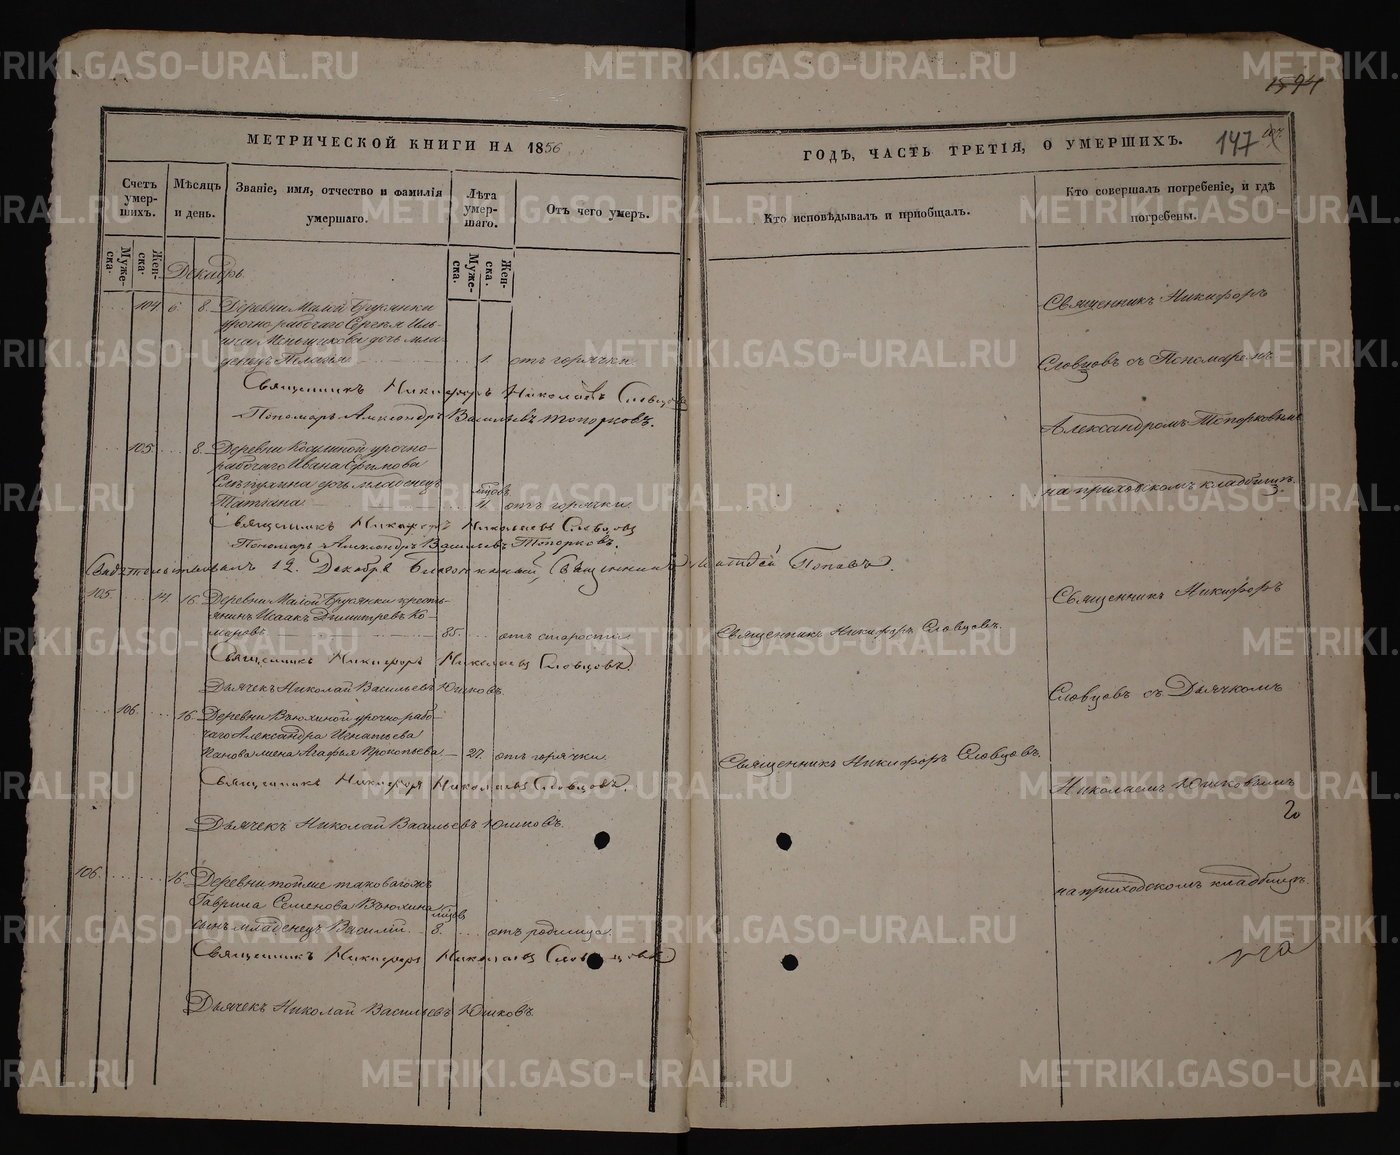 МЕТРИЧЕСКОЙ КНИГИ НА 1856
ГОДѢ, ЧАСТЬ ТРЕТІЯ, О УМЕРШИХЪ.
147
Счетъ умер-шихъ.
Мѣсяцъ и день.
Званіе, имя, отчество и фамилія
умершаго.
Лѣта умер-шаго.
Отъ чего умеръ.
Кто исповѣдывалъ и пріобщалъ.
Кто совершалъ погребеніе, и гдѣ
погребены.
Муже-ска.
Жен-ска.
Муже-ска.
Жен-ска.
Декабрь
104. 6. 8. Деревни Малой Брусянки
урочно рабочаго Сергея Иль-
ина Меньщикова дочь мла-
денецъ 1. отъ горячки
Священникъ Никифоръ Николаевъ Словцовъ
Пономарь Александръ Васильевъ Топорковъ.
105. 8. Деревни урочно
рабочаго Ивана Ефимова
дочь младенецъ
Татіана мѣсцов. 4. отъ горячки
Священникъ Никифоръ Николаевъ Словцовъ
Пономарь Александръ Васильевъ Топорковъ.
12. Декабря Благочинный, Священникъ Поповъ.
105. 14. 16. Деревни Малой Брусянки кресть-
янинъ Исаакъ Димитревъ Ко-
маровъ 85. отъ старости
Священникъ Никифоръ Словцовъ.
Священникъ Никифоръ Николаевъ Словцовъ.
Дьячекъ Николай Васильевъ Юшковъ.
106. 16. Деревни Вьюхиной урочно рабо-
чаго Александра Игнатьева
Панова жена Агафья Прокопьева 27. отъ горячки
Священникъ Никифоръ Словцовъ.
Священникъ Никифоръ Николаевъ Словцовъ.
Дьячекъ Николай Васильевъ Юшковъ.
106. 16. Деревни тойже таковагожъ
Гаврила Семенова Вьюхина
сынъ младенецъ Василій 8. отъ родимца
Священникъ Никифоръ Николаевъ Словцовъ
Дьячекъ Николай Васильевъ Юшковъ
Священникъ Никифоръ
Словцовъ съ Пономаремъ
Александромъ Топорковымъ
на приходскомъ кладбищѣ.
Священникъ Никифоръ
Словцовъ съ Дьячкомъ
Николаемъ Юшковымъ
на приходскомъ кладбищѣ.
METRIKI.GASO-URAL.RU